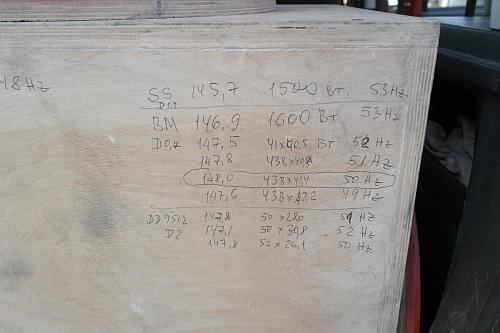 48Hz
SS 145,7 1500 Вт. 53Hz
D1,1
BM 146,9 1600 Вт 53Hz
147,5 41x40,5 Вт 52Hz
147,8 51Hz
148,0 43В x 41,4 50 Hz
147,6 43В x 42,2 49 Hz
DD9512 147,8 50 x 28,0 Hz
D2 147,1 50 x 30,8 52 Hz
147,8 52 x 26,1 50 Hz